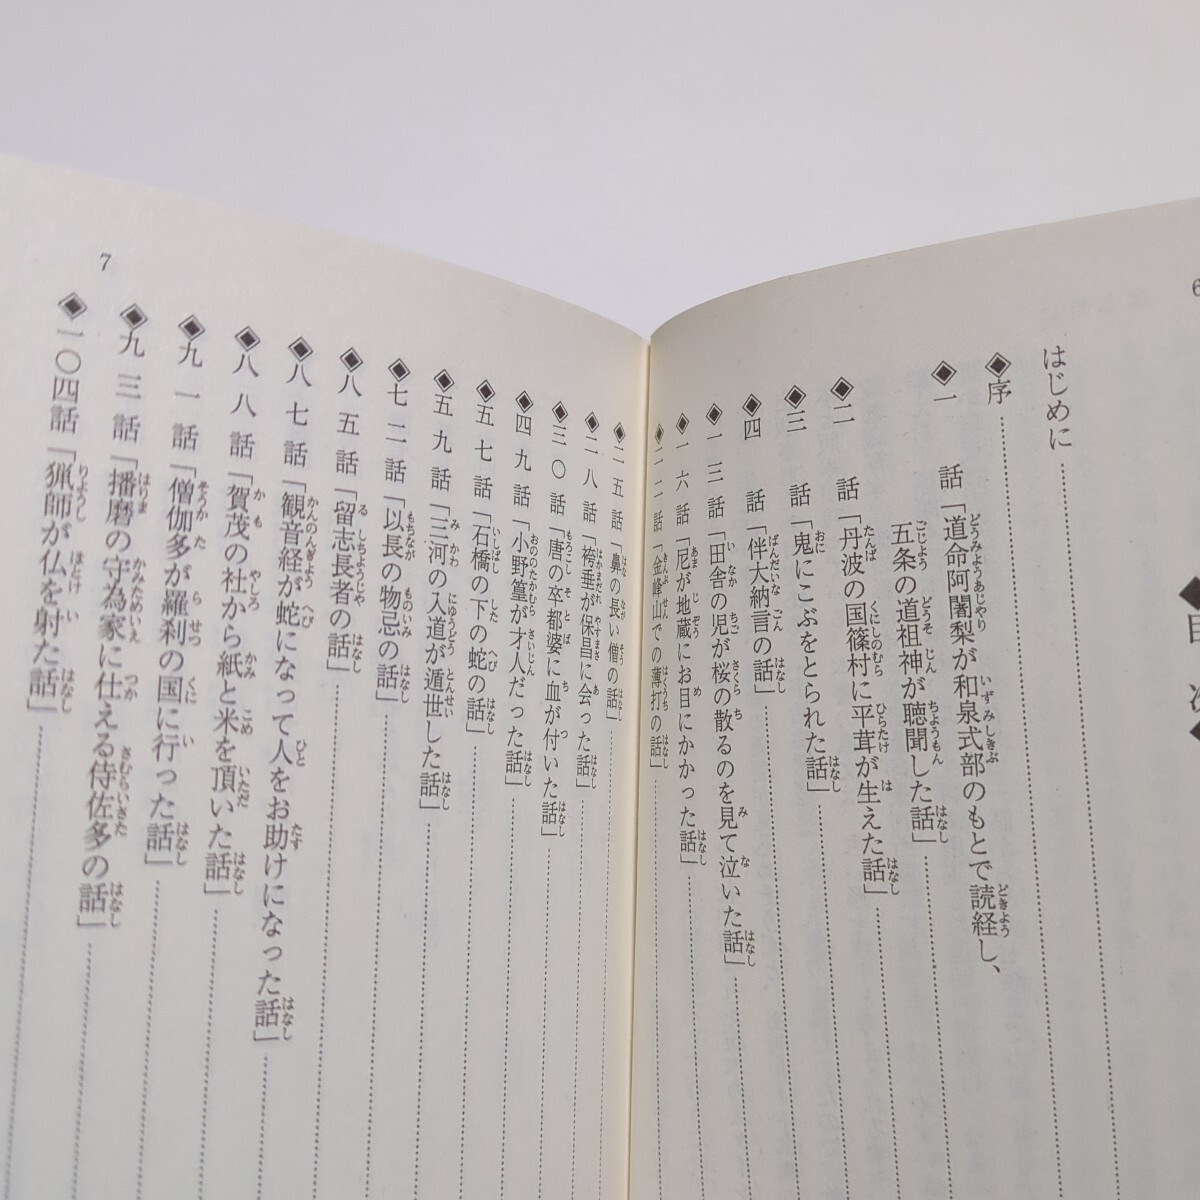 6
◆目次◆
はじめに
◈序
◈一話「道命阿闍梨が和泉式部のもとで読経し、
五条の道祖神が聴聞した話」
◈二話「丹波の国篠村に平茸が生えた話」
◈三話「鬼にこぶをとられた話」
◈四話「伴大納言の話」
◈一三話「田舎の児が桜の散るのを見て泣いた話」
◈一六話「尼が地蔵にお目にかかった話」
◈二二話「金峰山での薄打の話」
◈二五話「鼻の長い僧の話」
◈二八話「袴垂が保昌に会った話」
◈三〇話「唐の卒都婆に血が付いた話」
◈四九話「小野篁が才人だった話」
◈五七話「石橋の下の蛇の話」
◈五九話「三河の入道が遁世した話」
◈七二話「以長の物忌の話」
◈八五話「留志長者の話」
◈八七話「観音経が蛇になって人をお助けになった話」
◈八八話「賀茂の社から紙と米を頂いた話」
◈九一話「僧伽多が羅刹の国に行った話」
◈九三話「播磨の守為家に仕える侍佐多の話」
◈一〇四話「猟師が仏を射た話」
7